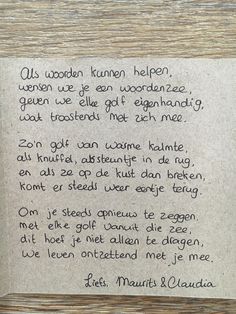 Als woorden kunnen helpen,
wensen we je een woordenzee,
geven we elke golf eigenhandig,
wat troostends met zich mee.
Zo'n golf van warme kalmte,
als knuffel, als steuntje in de rug,
en als ze op de kust dan breken,
komt er steeds weer eentje terug.
Om je steeds opnieuw te zeggen
met elke golf vanuit die zee,
dit hoef je niet alleen te dragen,
we leven ontzettend met je mee.
Liefs, Maurits & Claudia